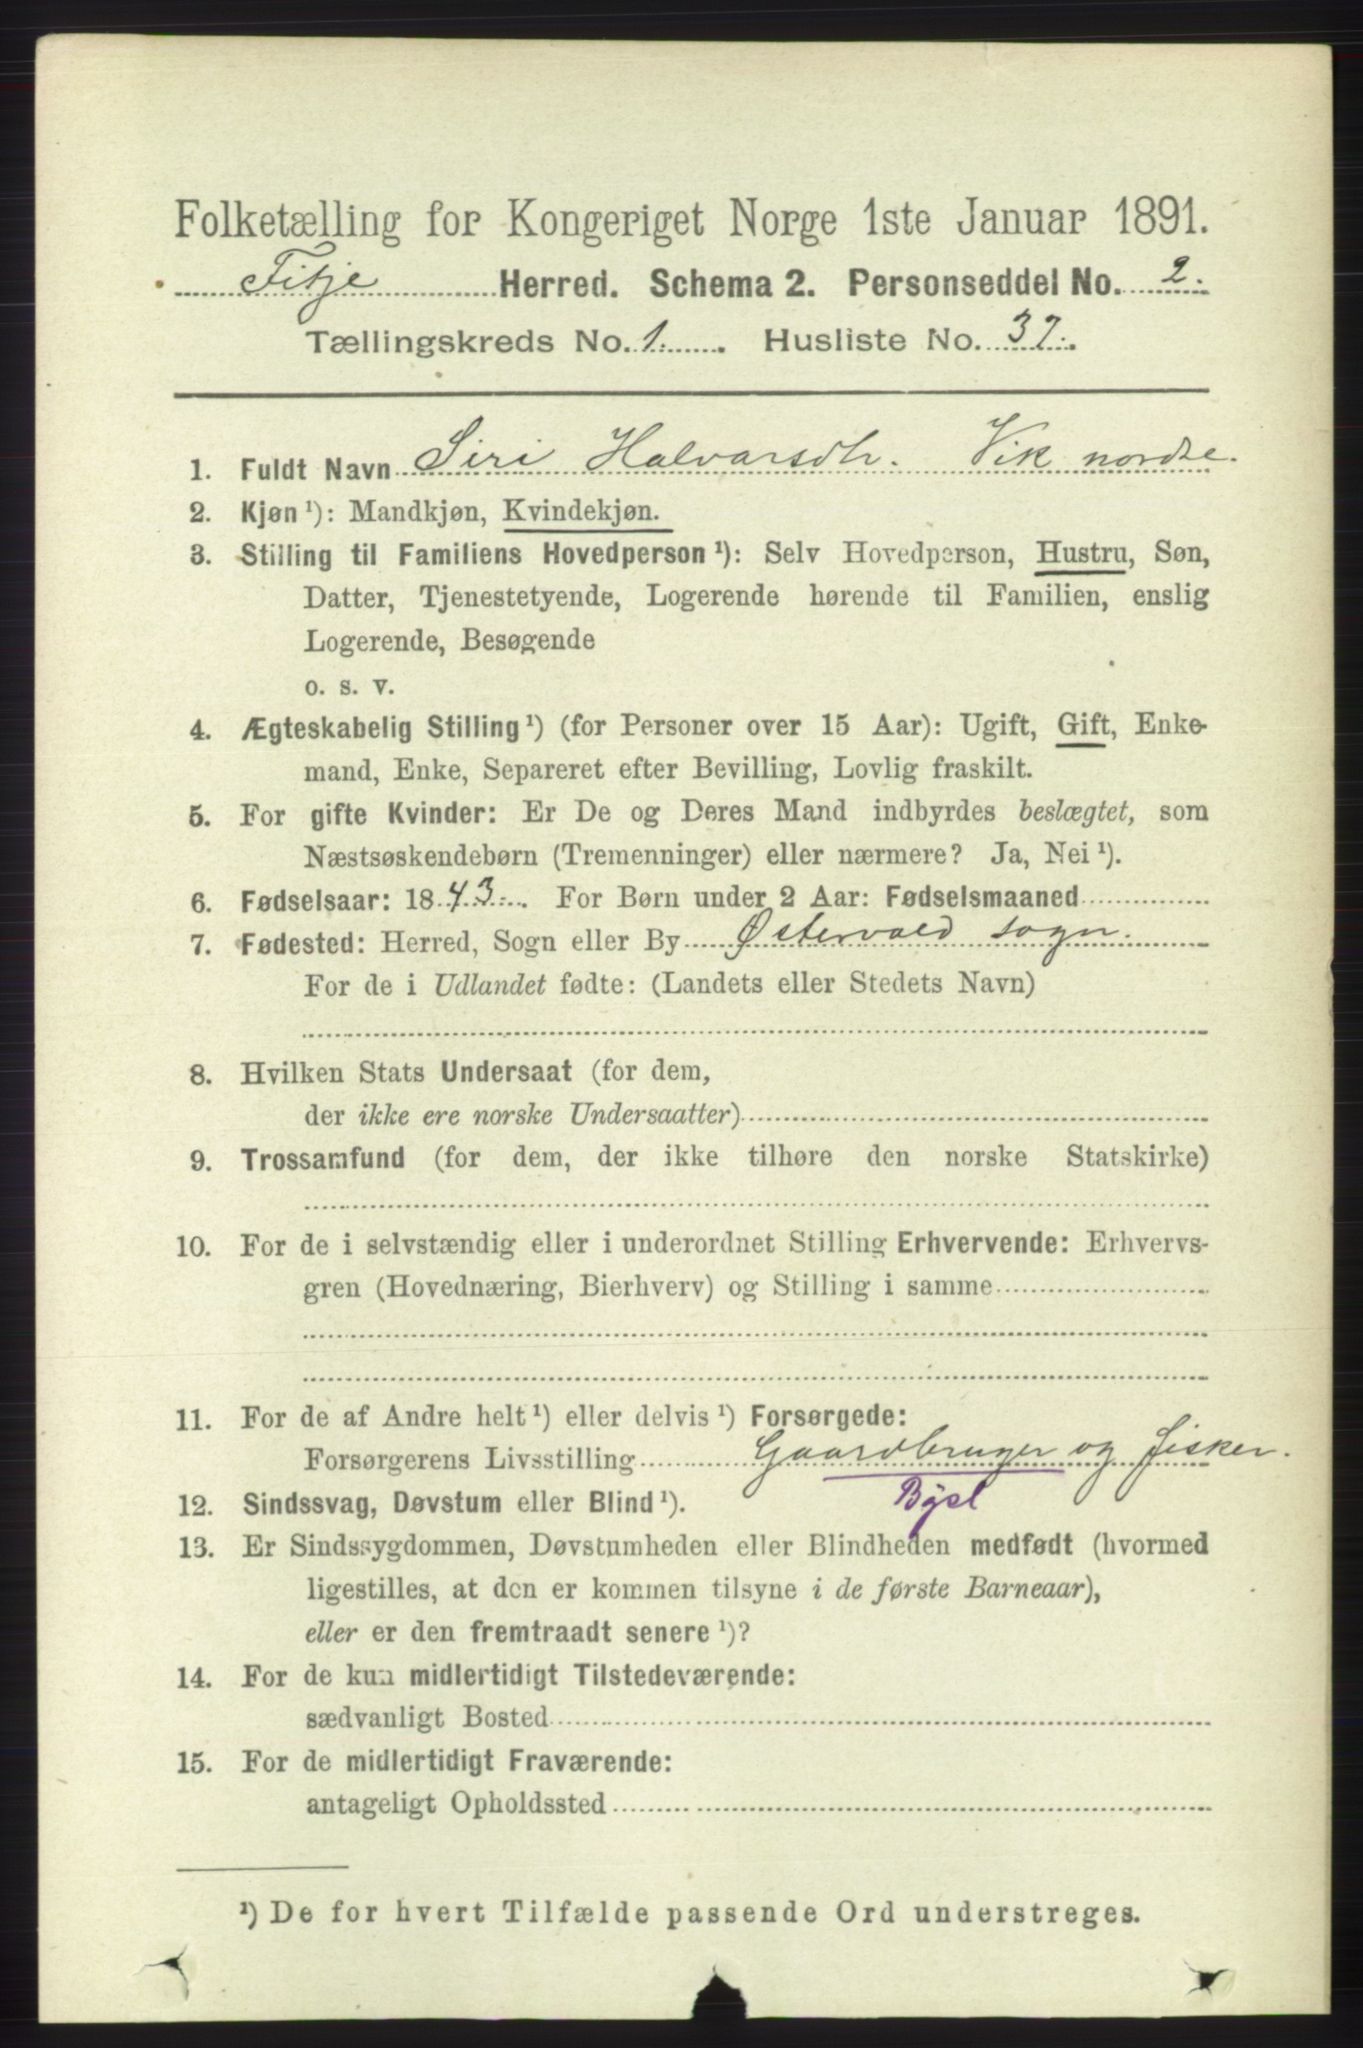 Folketælling for Kongeriget Norge 1ste Januar 1891.
Fitje Herred. Schema 2. Personseddel No. 2.
Tællingskreds No. 1. Husliste No. 37.
1. Fuldt Navn Siri Halvarsdtr. Vik nordre.
2. Kjøn ¹): Mandkjøn, Kvindekjøn.
3. Stilling til Familiens Hovedperson ¹): Selv Hovedperson, Hustru, Søn,
Datter, Tjenestetyende, Logerende hørende til Familien, enslig
Logerende, Besøgende
o. s. v.
4. Ægteskabelig Stilling ¹) (for Personer over 15 Aar): Ugift, Gift, Enke-
mand, Enke, Separeret efter Bevilling, Lovlig fraskilt.
5. For gifte Kvinder: Er De og Deres Mand indbyrdes beslægtet, som
Næstsøskendebørn (Tremenninger) eller nærmere? Ja, Nei ¹).
6. Fødselsaar: 1843. For Børn under 2 Aar: Fødselsmaaned
7. Fødested: Herred, Sogn eller By Østervold sogn.
For de i Udlandet fødte: (Landets eller Stedets Navn)
8. Hvilken Stats Undersaat (for dem,
der ikke ere norske Undersaatter)
9. Trossamfund (for dem, der ikke tilhøre den norske Statskirke)
10. For de i selvstændig eller i underordnet Stilling Erhvervende: Erhvervs-
gren (Hovednæring, Bierhverv) og Stilling i samme
11. For de af Andre helt ¹) eller delvis ¹) Forsørgede:
Forsørgerens Livsstilling Gaardbruger og fisker.
12. Sindssvag, Døvstum eller Blind ¹).
13. Er Sindssygdommen, Døvstumheden eller Blindheden medfødt (hvormed
ligestilles, at den er kommen tilsyne i de første Barneaar),
eller er den fremtraadt senere ¹)?
14. For de kun midlertidigt Tilstedeværende:
sædvanligt Bosted
15. For de midlertidigt Fraværende:
antageligt Opholdssted
¹) De for hvert Tilfælde passende Ord understreges.